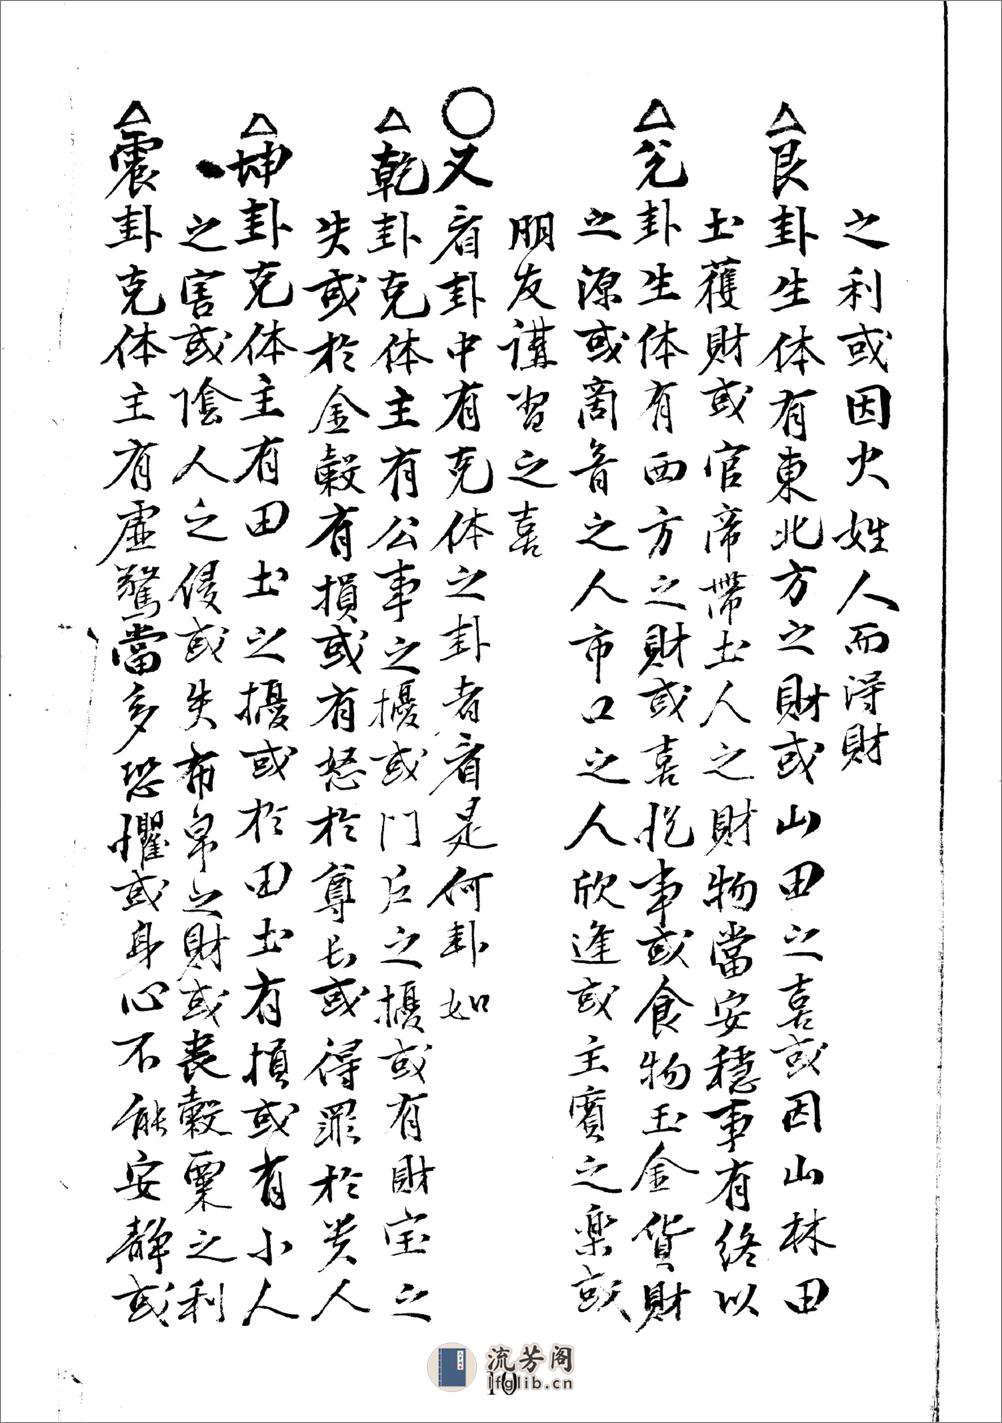 之利或因火姓人而淂財
△艮卦生体有東北方之財或山田之喜或因山林田
土獲財或官帝帶土人之財物當安穏事有终以
△兑卦生体有西方之財或喜悦事或食物玉金貨財
之源或商音之人市口之人欣逢或主賓之楽或
朋友講習之喜
○又看卦中有克体之卦者看是何卦如
△乾卦克体主有公事之擾或門户之擾或有財宝之
失或於金榖有損或有怒於尊长或得罪於贵人
△坤卦克体主有田土之擾或於田土有損或有小人
之害或陰人之侵或失布帛之財或丧榖粟之利
△震卦克体主有虚驚當多恐懼或身心不能安靜或
流芳阁
lfglib.cn
10